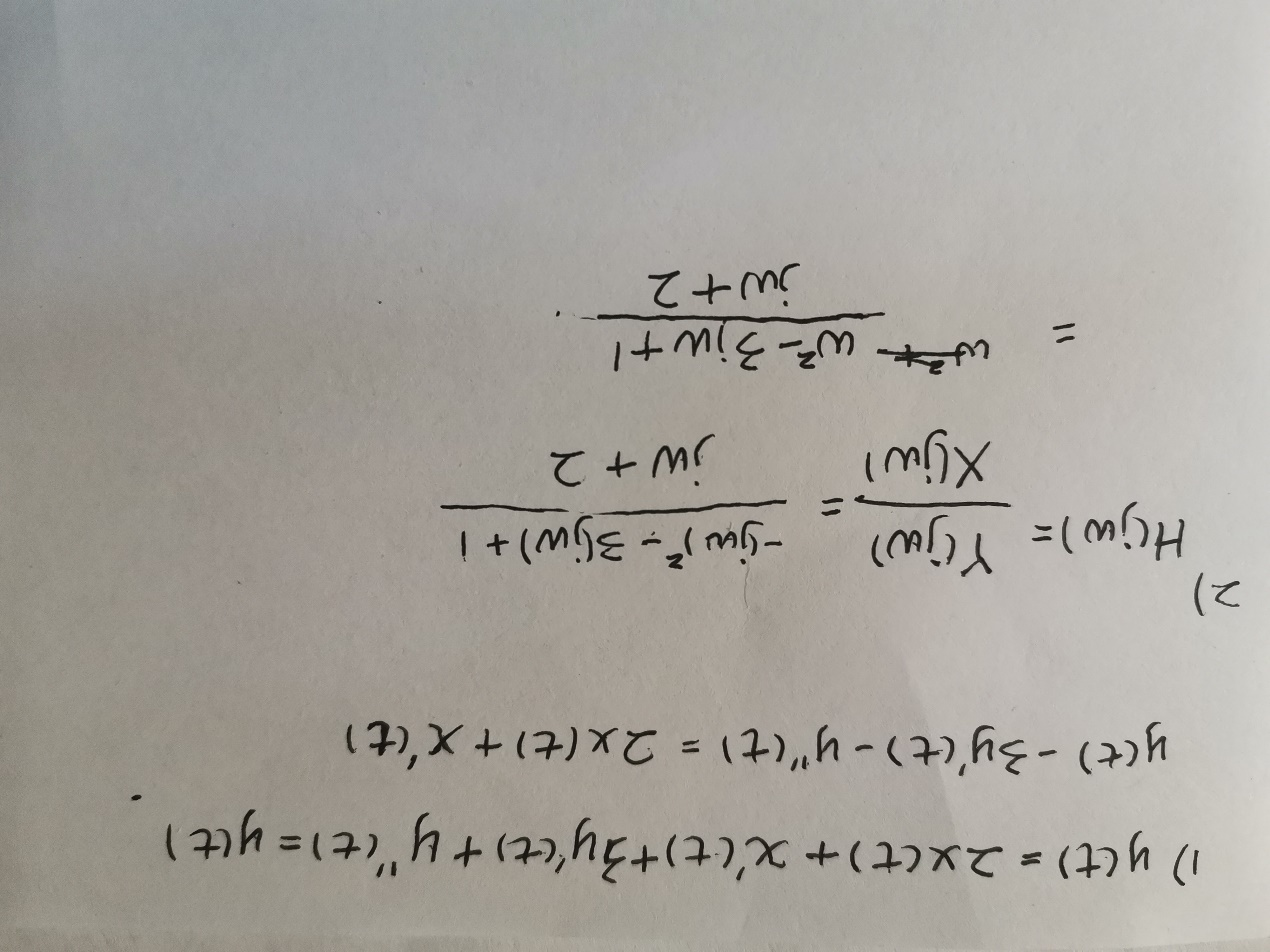 1) y(t) = 2x(t) + x'(t)+3y'(t) + y''(t) = y(t)
y(t) - 3y'(t) - y''(t) = 2x(t) + x'(t)
2)
H(jw) = Y(jw)/X(jw) = -(jw)² - 3(jw)+1/jw + 2
= w² - 3jw+1/jw + 2